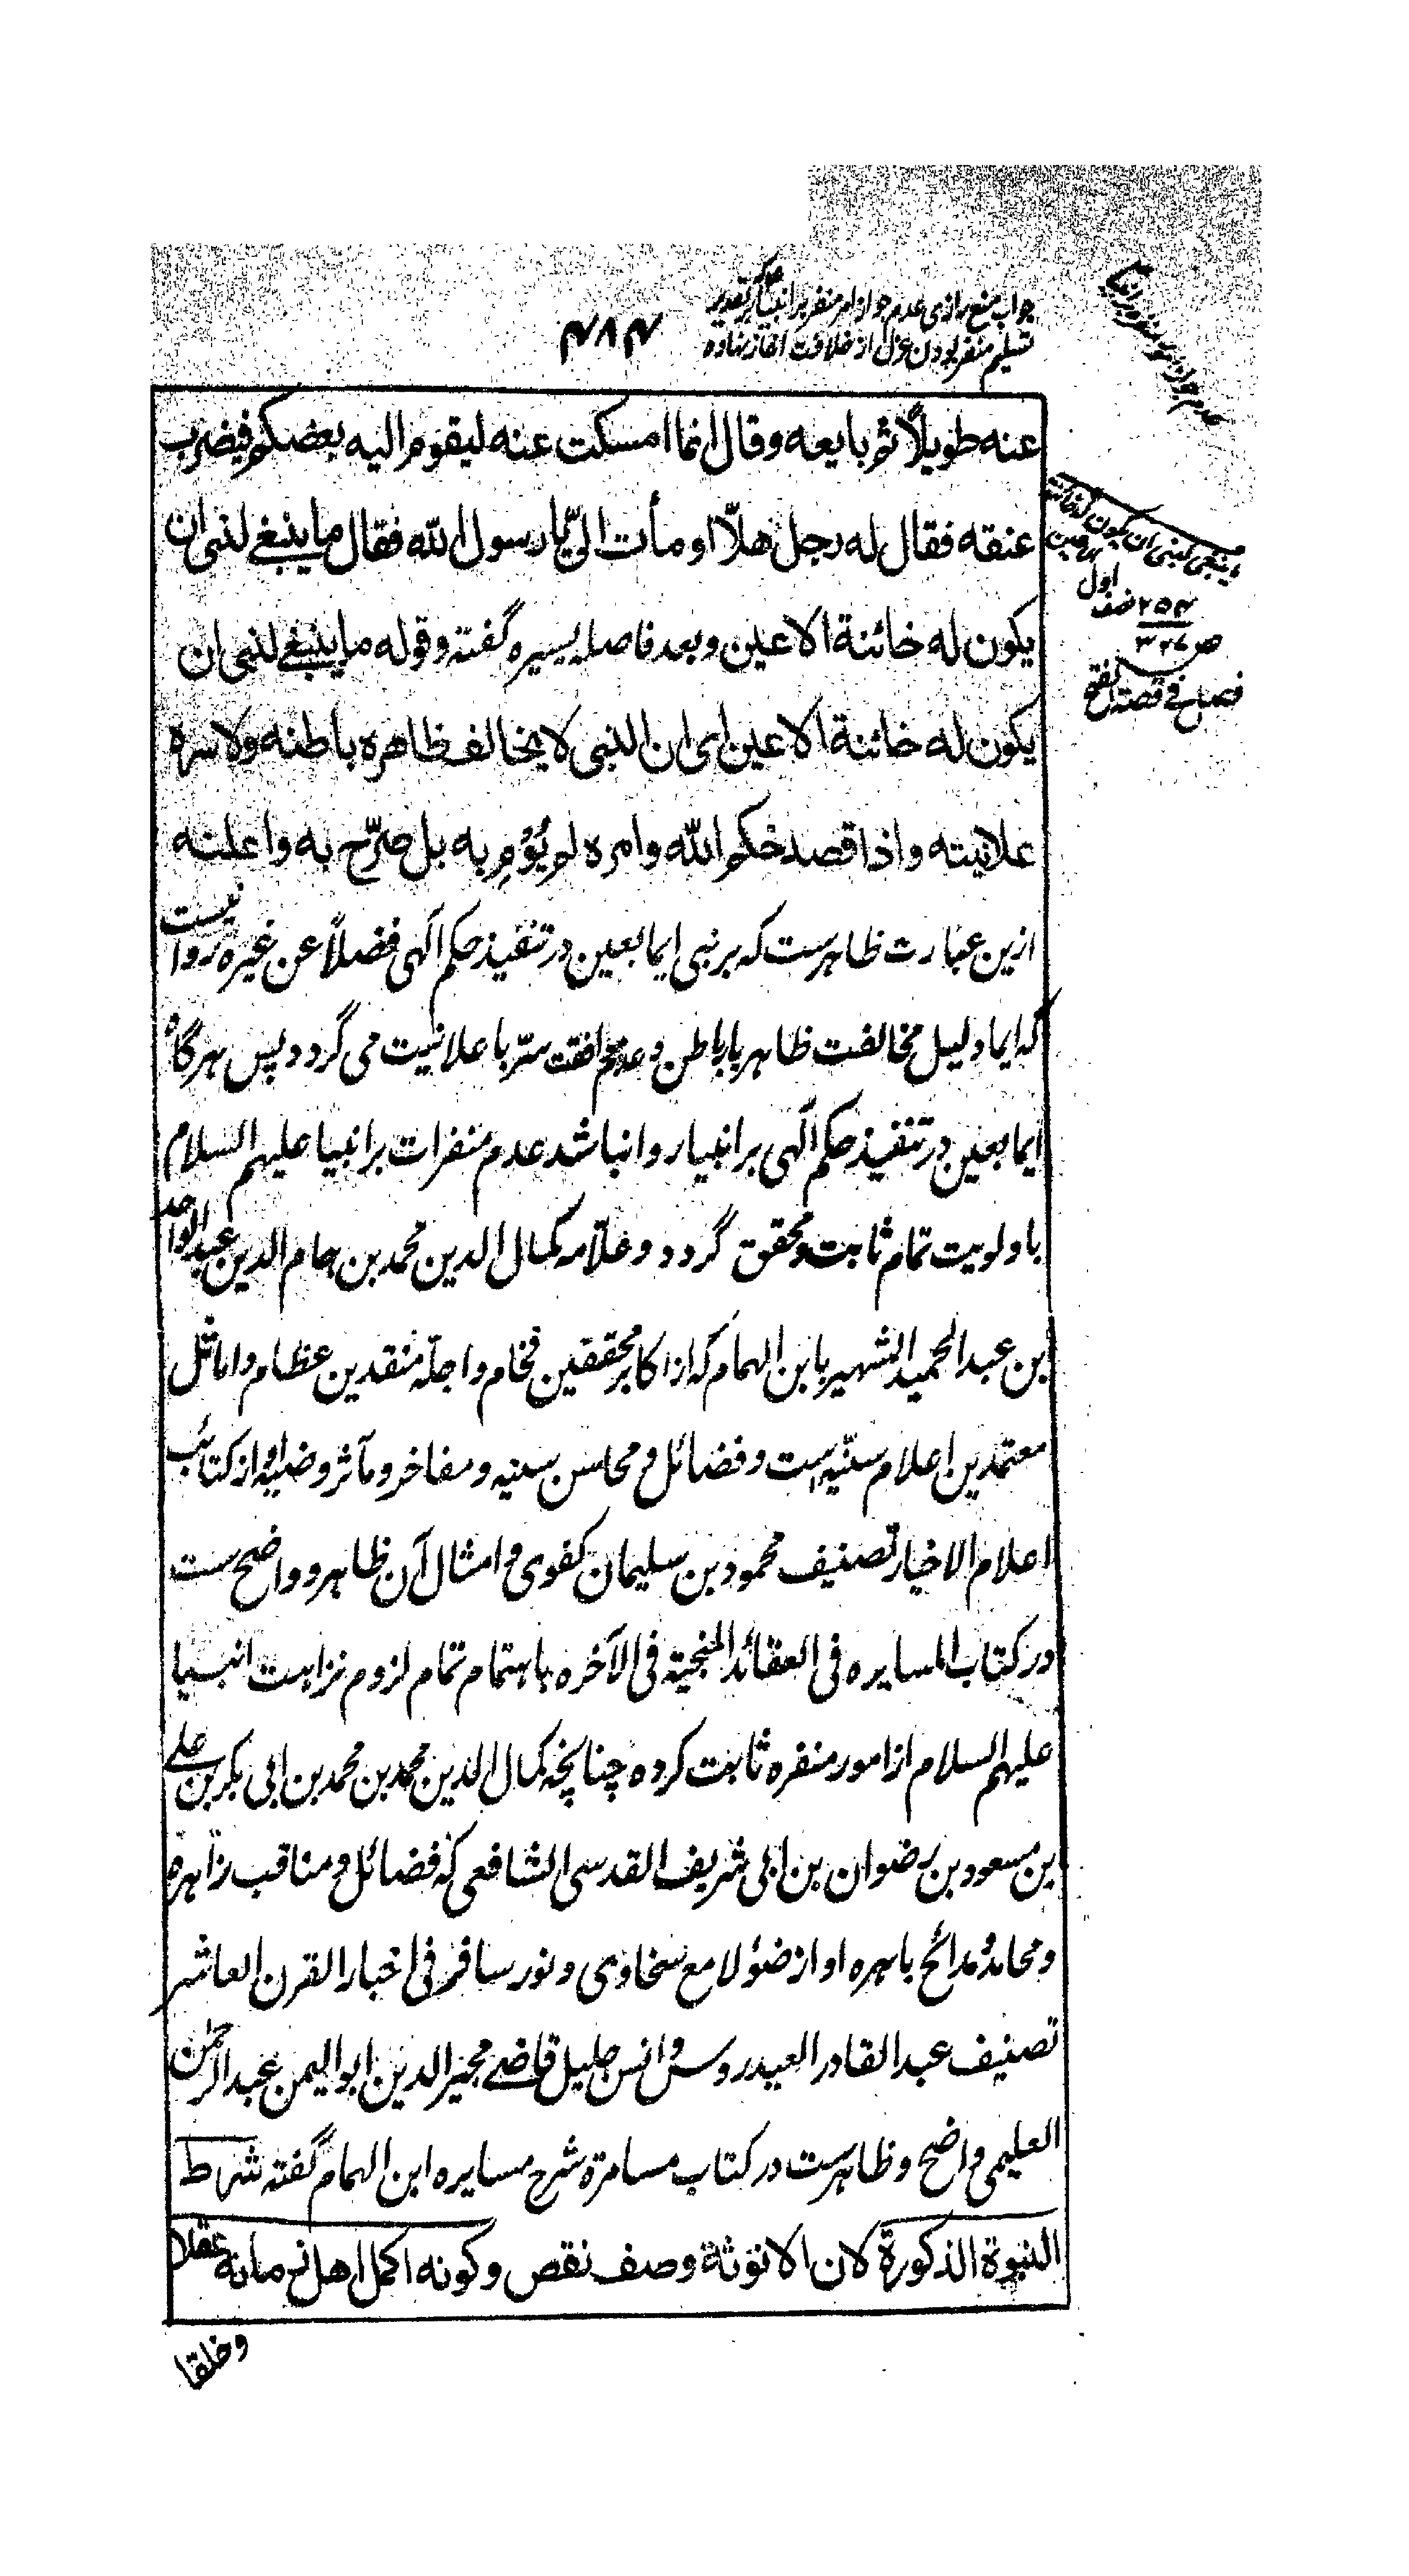 جواب منع رازی عدم جواز امر منفر بر انبیا بر تقدیر
تسلیم منفر بودن عزل از خلافت
۴۸۴
عنه طويلاً ثم بايعه وقال انما امسكت عنه ليقوم اليه بعضكم فيضرب
عنقه فقال له رجل هلّا اومأت اليّ يا رسول الله فقال ما ينبغي لنبي ان
يكون له خائنة الاعين وبعد فاصله يسيره گفته وقوله ما ينبغي لنبي ان
يكون له خائنة الاعين اى ان النبى لا يخالف ظاهره باطنه ولا سره
علانيته واذا قصد حكم الله وامره لم يؤمِ به بل صرّح به واعلنه
ازین عبارت ظاهرست که بر نبی ایما بعین در تنفیذ حکم الٰهی فضلاً عن غیره روا نیست
که ایما دلیل مخالفت ظاهر با باطن و عدم موافقت سرّ با علانیت می گردد پس هرگاه
ایما بعین در تنفیذ حکم الٰهی بر انبیا روا نباشد عدم منفرات بر انبیا علیهم السلام
باولویت تمام ثابت و محقق گردد و علّامه کمال الدین محمد بن همام الدین عبد الواحد
بن عبد الحمید الشهیر بابن الهمام که از اکابر محققین فخام و اجلّه منقدین عظام و اماثل
معتمدین اعلام سنّیه است و فضائل و محاسن سنیه و مفاخر و مآثر وضیئه او از کتائب
اعلام الاخیار تصنیف محمود بن سلیمان کفوی و امثال آن ظاهر و واضح ست
در کتاب المسایره فی العقائد المنجیة فی الآخره باهتمام تمام لزوم نزاهت انبیا
علیهم السلام از امور منفره ثابت کرده چنانچه کمال الدین محمد بن محمد بن ابی بکر بن علی
بن مسعود بن رضوان بن ابی شریف القدسی الشافعی که فضائل و مناقب زاهره
و محامد و مدائح باهره او از ضوء لامع سخاوی و نور سافر فی اخبار القرن العاشر
تصنیف عبد القادر العیدروس و انس جلیل قاضی مجیر الدین ابو الیمن عبد الرحمٰن
العلیمی واضح و ظاهرست در کتاب مسامرة شرح مسایره ابن الهمام گفته شرط
النبوة الذكورة لان الانوثة وصف نقص وكونه اكمل اهل زمانه عقلا
وخلقا
ما ینبغی لنبی ان یکون له خائنة
الاعین
اول
۲۵۴ نصف
ص ۳۲۷
فصل فی قصة الفتح